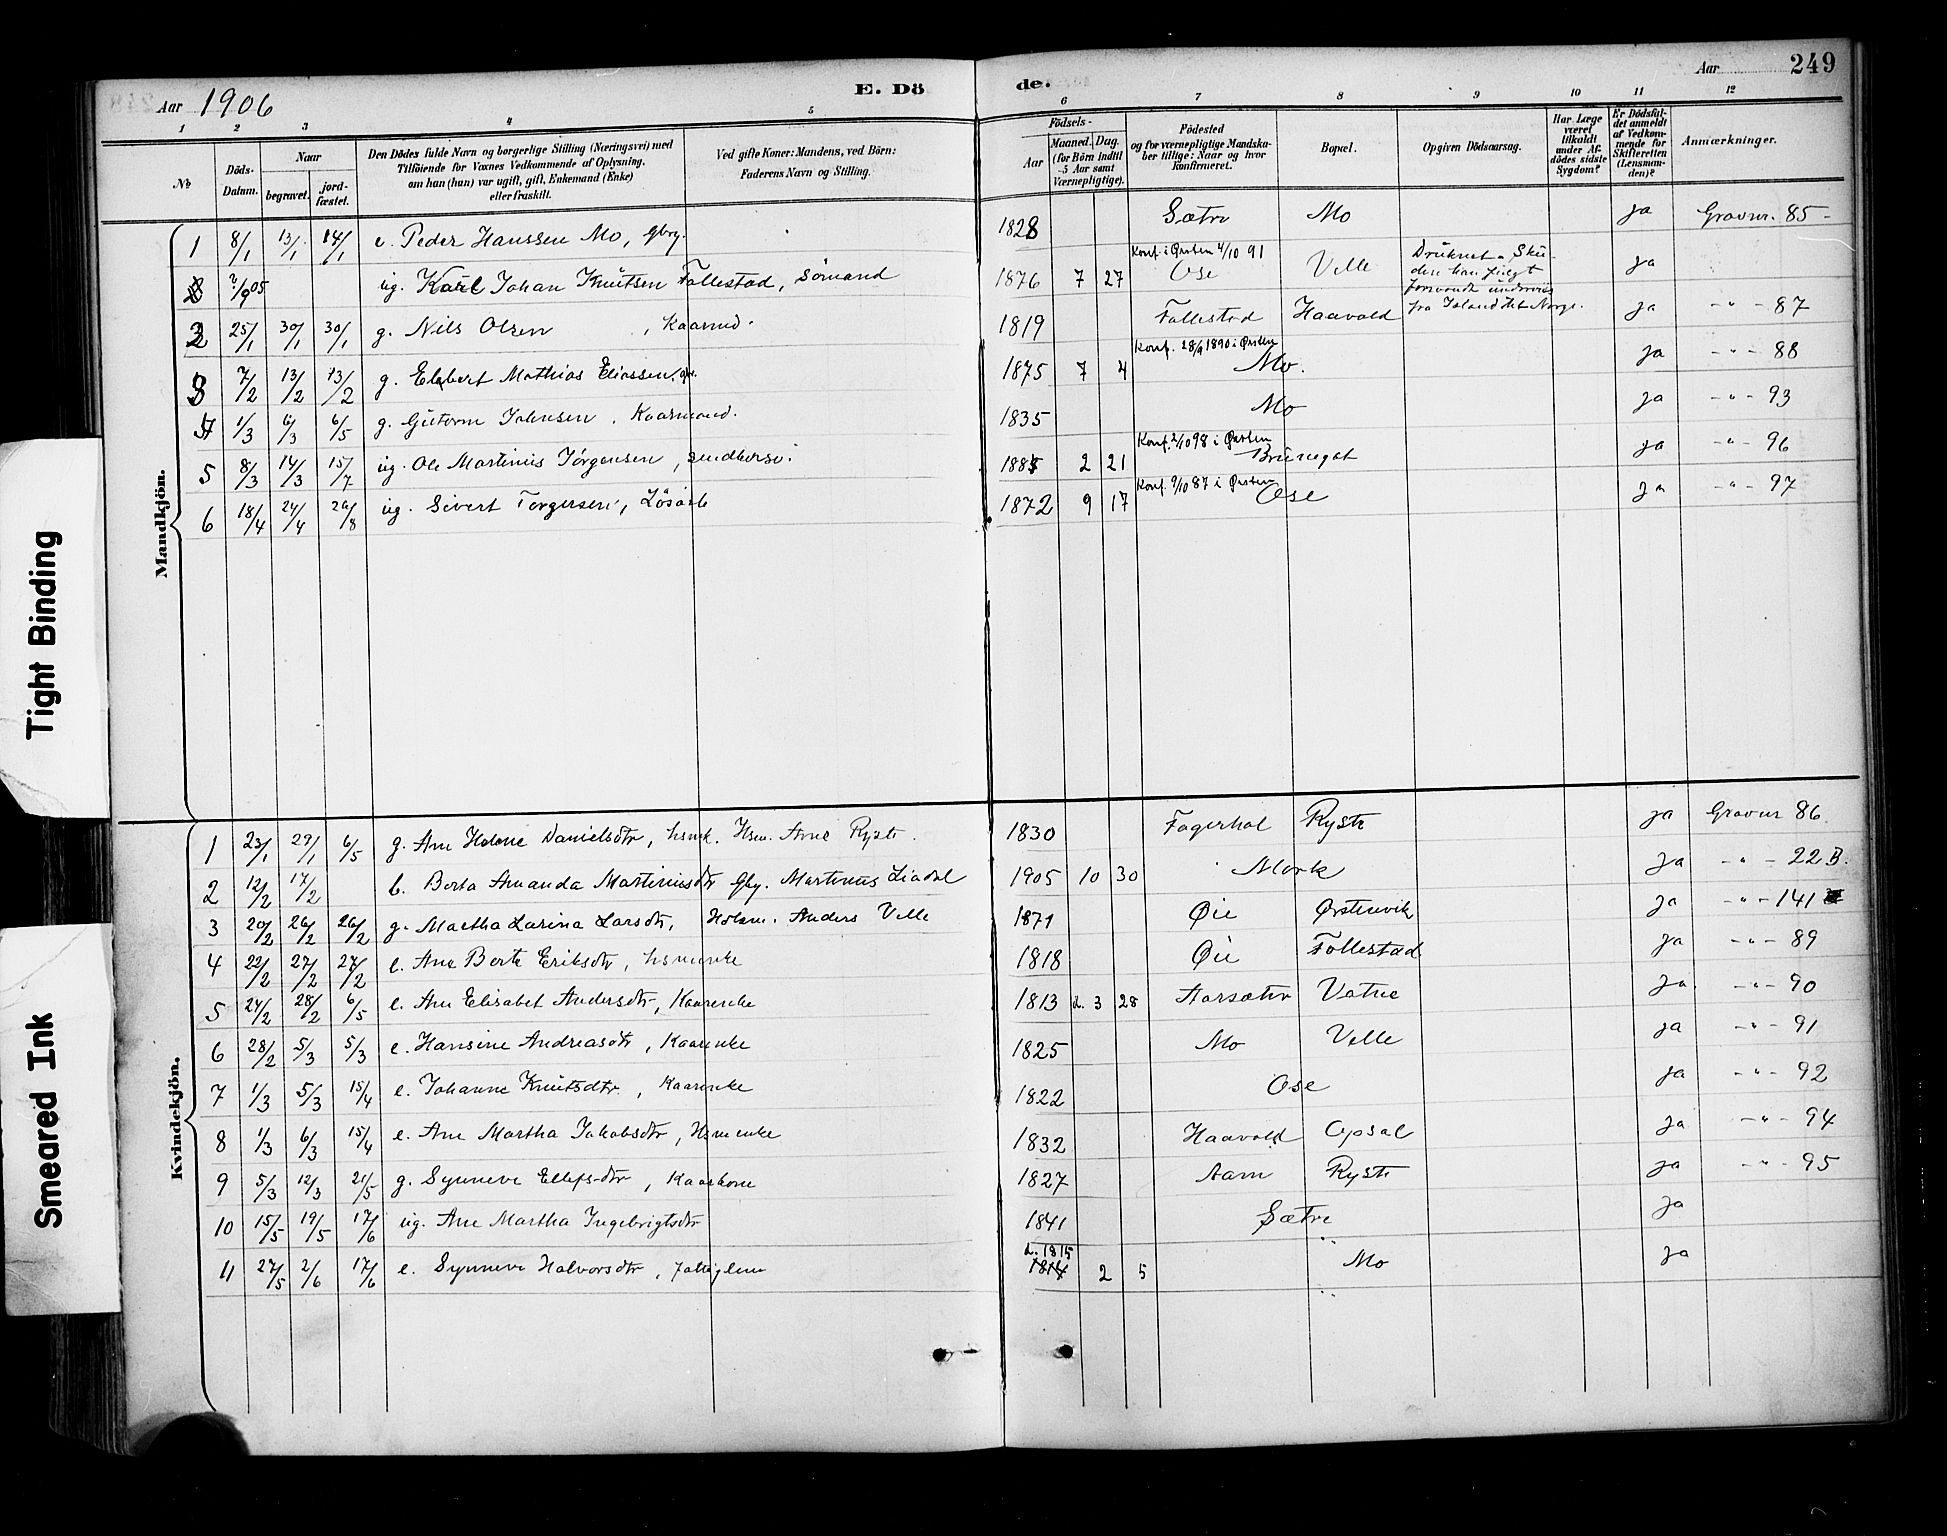 Aar 1906
E. Dö
de.
Aar
249
1 2 3 4 5 6 7 8 9 10 11 12
№
Döds-
Datum.
Naar
begravet.
jord-
fæstet.
Den Dödes fulde Navn og borgerlige Stilling (Næringsvei) med
Tilföiende for Voxnes Vedkommende af Oplysning,
om han (hun) var ugift, gift, Enkemand (Enke)
eller fraskilt.
Ved gifte Koner: Mandens, ved Börn:
Faderens Navn og Stilling.
Födsels-
Aar
Maaned. Dag.
(for Börn indtil
5 Aar samt
Værnepligtige).
Födested
og for værnepligtige Mandska-
ber tillige: Naar og hvor
konfirmeret.
Bopæl.
Opgiven Dödsaarsag.
Har Læge
været
tilkaldt
under Af-
dödes sidste
Sygdom?
Er Dödsfal-
det anmeldt
af Vedkom-
mende for
Skifteretten
(Lensman-
den)?
Anmærkninger.
Mandkjön.
1 8/1 13/1 14/1 e. Peder Hanssen Mo, Gbrg. 1828 Sætre Mo ja Gravnr. 85 -
?/9 05 ug. Karl Johan Knutsen Follestad, Sömand 1876 7 27 Konf. i Ørsten 4/10 91 Ose Velle Druknet. Sku-
den han fulgt
forsvandt underveis
fra Island til Norge. ja
2 25/1 30/1 30/1 g. Nils Olsen , Kaarmd. 1819 Follestad Haavold ja -"- 87
3 7/2 13/2 13/2 g. Elebert Mathias Eliassen, 1875 7 4 Konf. 28/9 1890 i Ørsten Mo. ja -"- 88
4 1/3 6/3 6/5 g. Guttorm Johnsen , Kaarmand. 1835 Mo ja -"- 93
5 8/3 14/3 15/7 ug. Ole Martinius Jörgensen, 1885 2 21 Konf. 2/10 98 i Ørsten Brunegot ja -"- 96
6 18/4 24/4 26/8 ug. Sivert Torgersen, Lösarb 1872 9 17 Konf. 9/10 87 i Ørsten Ose ja -"- 97
Kvindekjön.
1 23/1 29/1 6/5 g. Ane Helene Danielsdtr, hsmk. Hsm. Arne Ryste. 1830 Fagerhol Ryste ja Gravnr 86.
2 12/2 17/2 b. Berta Amanda Martinusdtr Gbg. Martinus Liadal 1905 10 30 Mork ja -"- 22 B.
3 20/2 26/2 26/2 g. Martha Larina Larsdtr, Hdsm. Anders Velle 1871 Øie Ørstenvik ja -"- 141
4 22/2 27/2 27/2 e. Ane Berte Eriksdtr, hsmenke 1818 Øie Follestad ja -"- 89
5 24/2 28/2 6/5 e. Ane Elisabet Andersdtr, Kaarenke 1813 d. 3 28 Aarsætre Vatne ja -"- 90
6 28/2 5/3 5/3 e. Hansine Andreasdtr, Kaarenke 1825 Mo Velle ja -"- 91
7 1/3 5/3 15/4 e. Johanne Knutsdtr. , Kaarenke 1822 Ose ja -"- 92
8 1/3 6/3 15/4 e. Ane Martha Jakobsdtr, Hsmenke 1832 Haavold Opsal ja -"- 94
9 5/3 12/3 21/5 g. Synneve Ellefsdtr , Kaarkone 1827 Aam Ryste ja -"- 95
10 15/5 19/5 17/6 ug. Ane Martha Ingebrigtsdtr 1841 Sætre ja
11 27/5 2/6 17/6 e. Synneve Halvorsdtr, 1814 d. 1815 2 5 Mo ja
Tight Binding
Smeared Ink